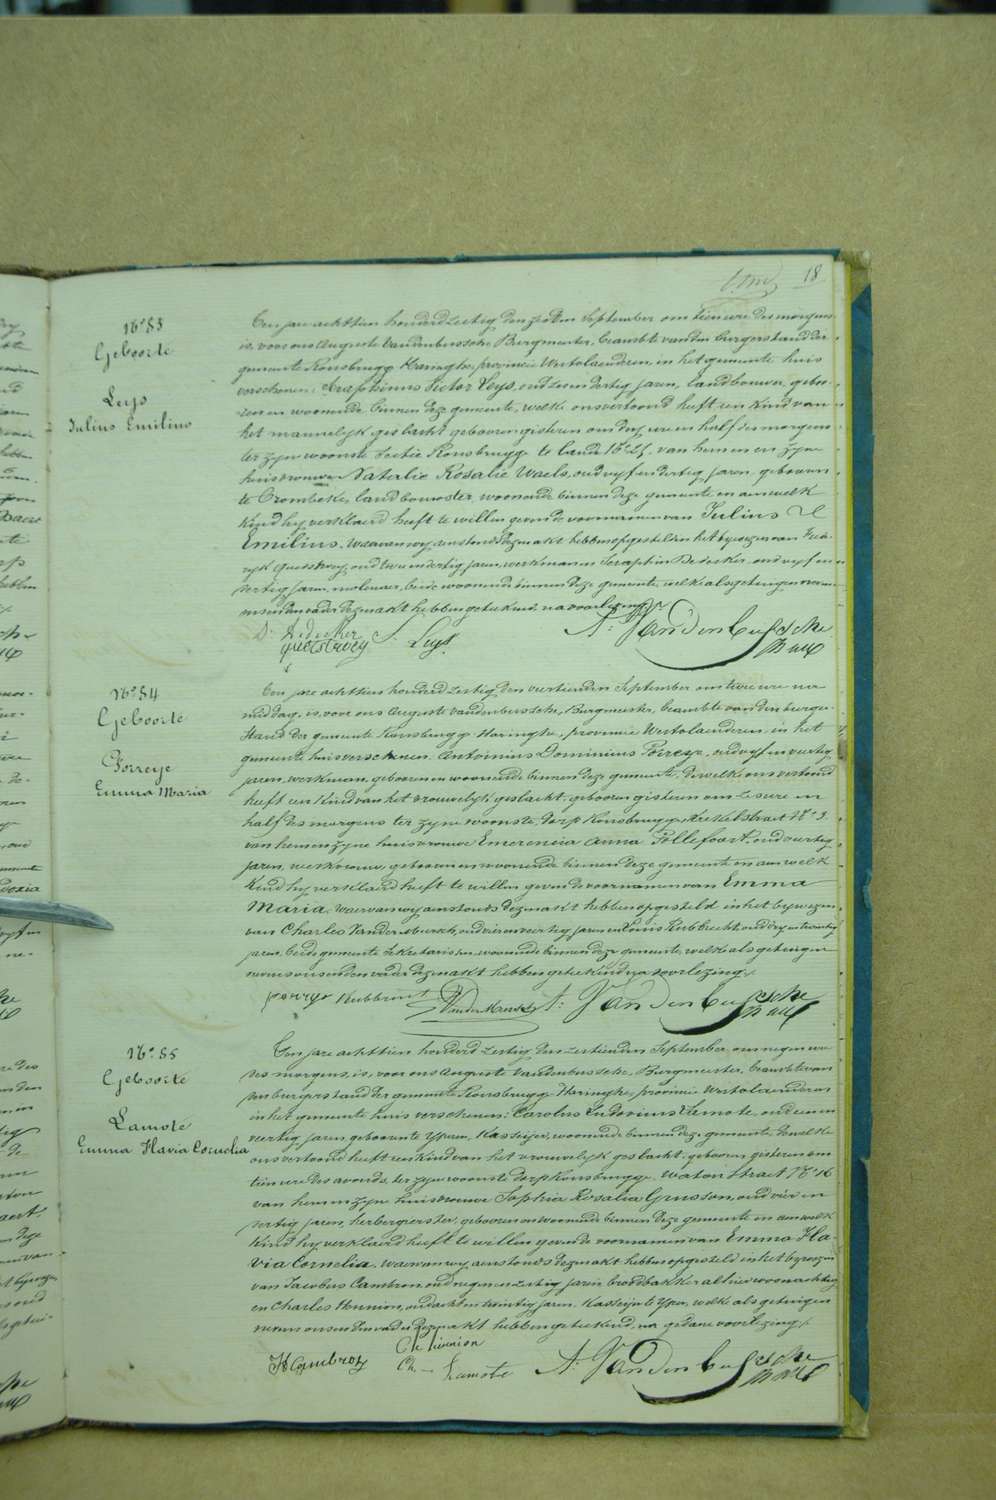 18
N° 83
Geboorte
Leys
Julius Emilius
Ten jare achttien honderd zestig den September om tien ure des morgens
is voor ons Auguste Vandenbussche Burgmeester, beambte van den burgerstand der
gemeente Ronsbrugge Haringhe, provincie Westvlaenderen, in het gemeente huis
verschenen: Seraphinus Victor Leys, oud zes en dertig jaren, landbouwer, gebo-
ren en woonende binnen deze gemeente, welke ons vertoond heeft een kind van
het mannelyk geslacht geboren gisteren om dry ure en half des morgens
ter zyne woonste Sectie Ronsbrugge te land N° 21, van hem en zyne
huisvrouwe Natalie Rosalie Waels, oud vyf en dertig jaren geboren
te Crombeke, landbouwster, woonende binnen deze gemeente en aen welk
kind hy verklaerd heeft te willen geven de voornamen van Julius
Emilius. Waervan wy aenstonds dezen akt hebben opgesteld in het bywezen van
oud twee en dertig jaren, werkman en Seraphin Dedecker oud vyf en
dertig jaren, molenaer, beide woonende binnen deze gemeente, welke als getuigen
den vader dezen akt hebben geteekend na voorlezing
S. Dedecker
Quaestroey S. Leys A: Vandenbussche
N° 84
Geboorte
Porreye
Emma Maria
Ten jare achttien honderd zestig den veertienden September om twee ure na
middag, is voor ons Auguste Vandenbussche, Burgmeester, beambte van den burger-
stand der gemeente Ronsbrugge Haringhe, provincie Westvlaenderen in het
gemeente huis verschenen Antonius Dominius Porreye, oud vyf en veertig
jaren, werkman, geboren en woonende binnen deze gemeente, dewelke ons vertoond
heeft een kind van het vrouwelyk geslacht, geboren gisteren om zes ure en
half des morgens ter zyne woonste, dorp Ronsbrugge, straet N° 9.
van hem en zyne huisvrouwe Emerencia Anna Pollefoort, oud veertig
jaren, werkvrouw, geboren en woonende binnen deze gemeente en aen welk
kind hy verklaerd heeft te willen geven de voornamen van Emma
Maria, waervan wy aenstonds dezen akt hebben opgesteld in het bywezen
van Charles Vandermeersch, oud vier en veertig jaren en Louis Rubbrecht, oud dry en twintig
jaren, beide gemeente sekretarissen, woonende binnen deze gemeente, welke als getuigen
nevens ons en den vader dezen akt hebben geteekend na voorlezing.
porreye Rubbrecht Vandermeersch A: Vandenbussche
N° 85
Geboorte
Lamote
Emma Flavia Cornelia
Ten jare achttien honderd zestig den zestienden September, om negen ure
des morgens, is voor ons Auguste Vandenbussche, Burgmeester, beambte van
den burgerstand der gemeente Ronsbrugge Haringhe, provincie Westvlaenderen
in het gemeente huis verschenen: Carolus Ludovicus Lamote, oud een en
veertig jaren, geboren te Yperen, Kasseyer, woonende binnen deze gemeente. Dewelke
ons vertoond heeft een kind van het vrouwelyk geslacht: geboren gisteren om
tien ure des avonds, ter zyne woonste dorp Ronsbrugge, Watoustraet N° 16
van hem en zyne huisvrouwe Sophia Rosalia Gruson, oud vier en
dertig jaren, herbergierster, geboren en woonende binnen deze gemeente en aen welk
kind hy verklaerd heeft te willen geven de voornamen van Emma Fla-
via Cornelia, waervan wy aenstonds dezen akt hebben opgesteld in het bywezen
van Jacobus Cambron, oud negen en zestig jaren broodbakker alhier woonachtig
en Charles Hennion, oud acht en twintig jaren, Kasseyer te Yper, welke als getuigen
nevens ons en den vader dezen akt hebben geteekend, na gedane voorlezing.
Ch hennion
Cambron Ch Lamote A: Vandenbussche